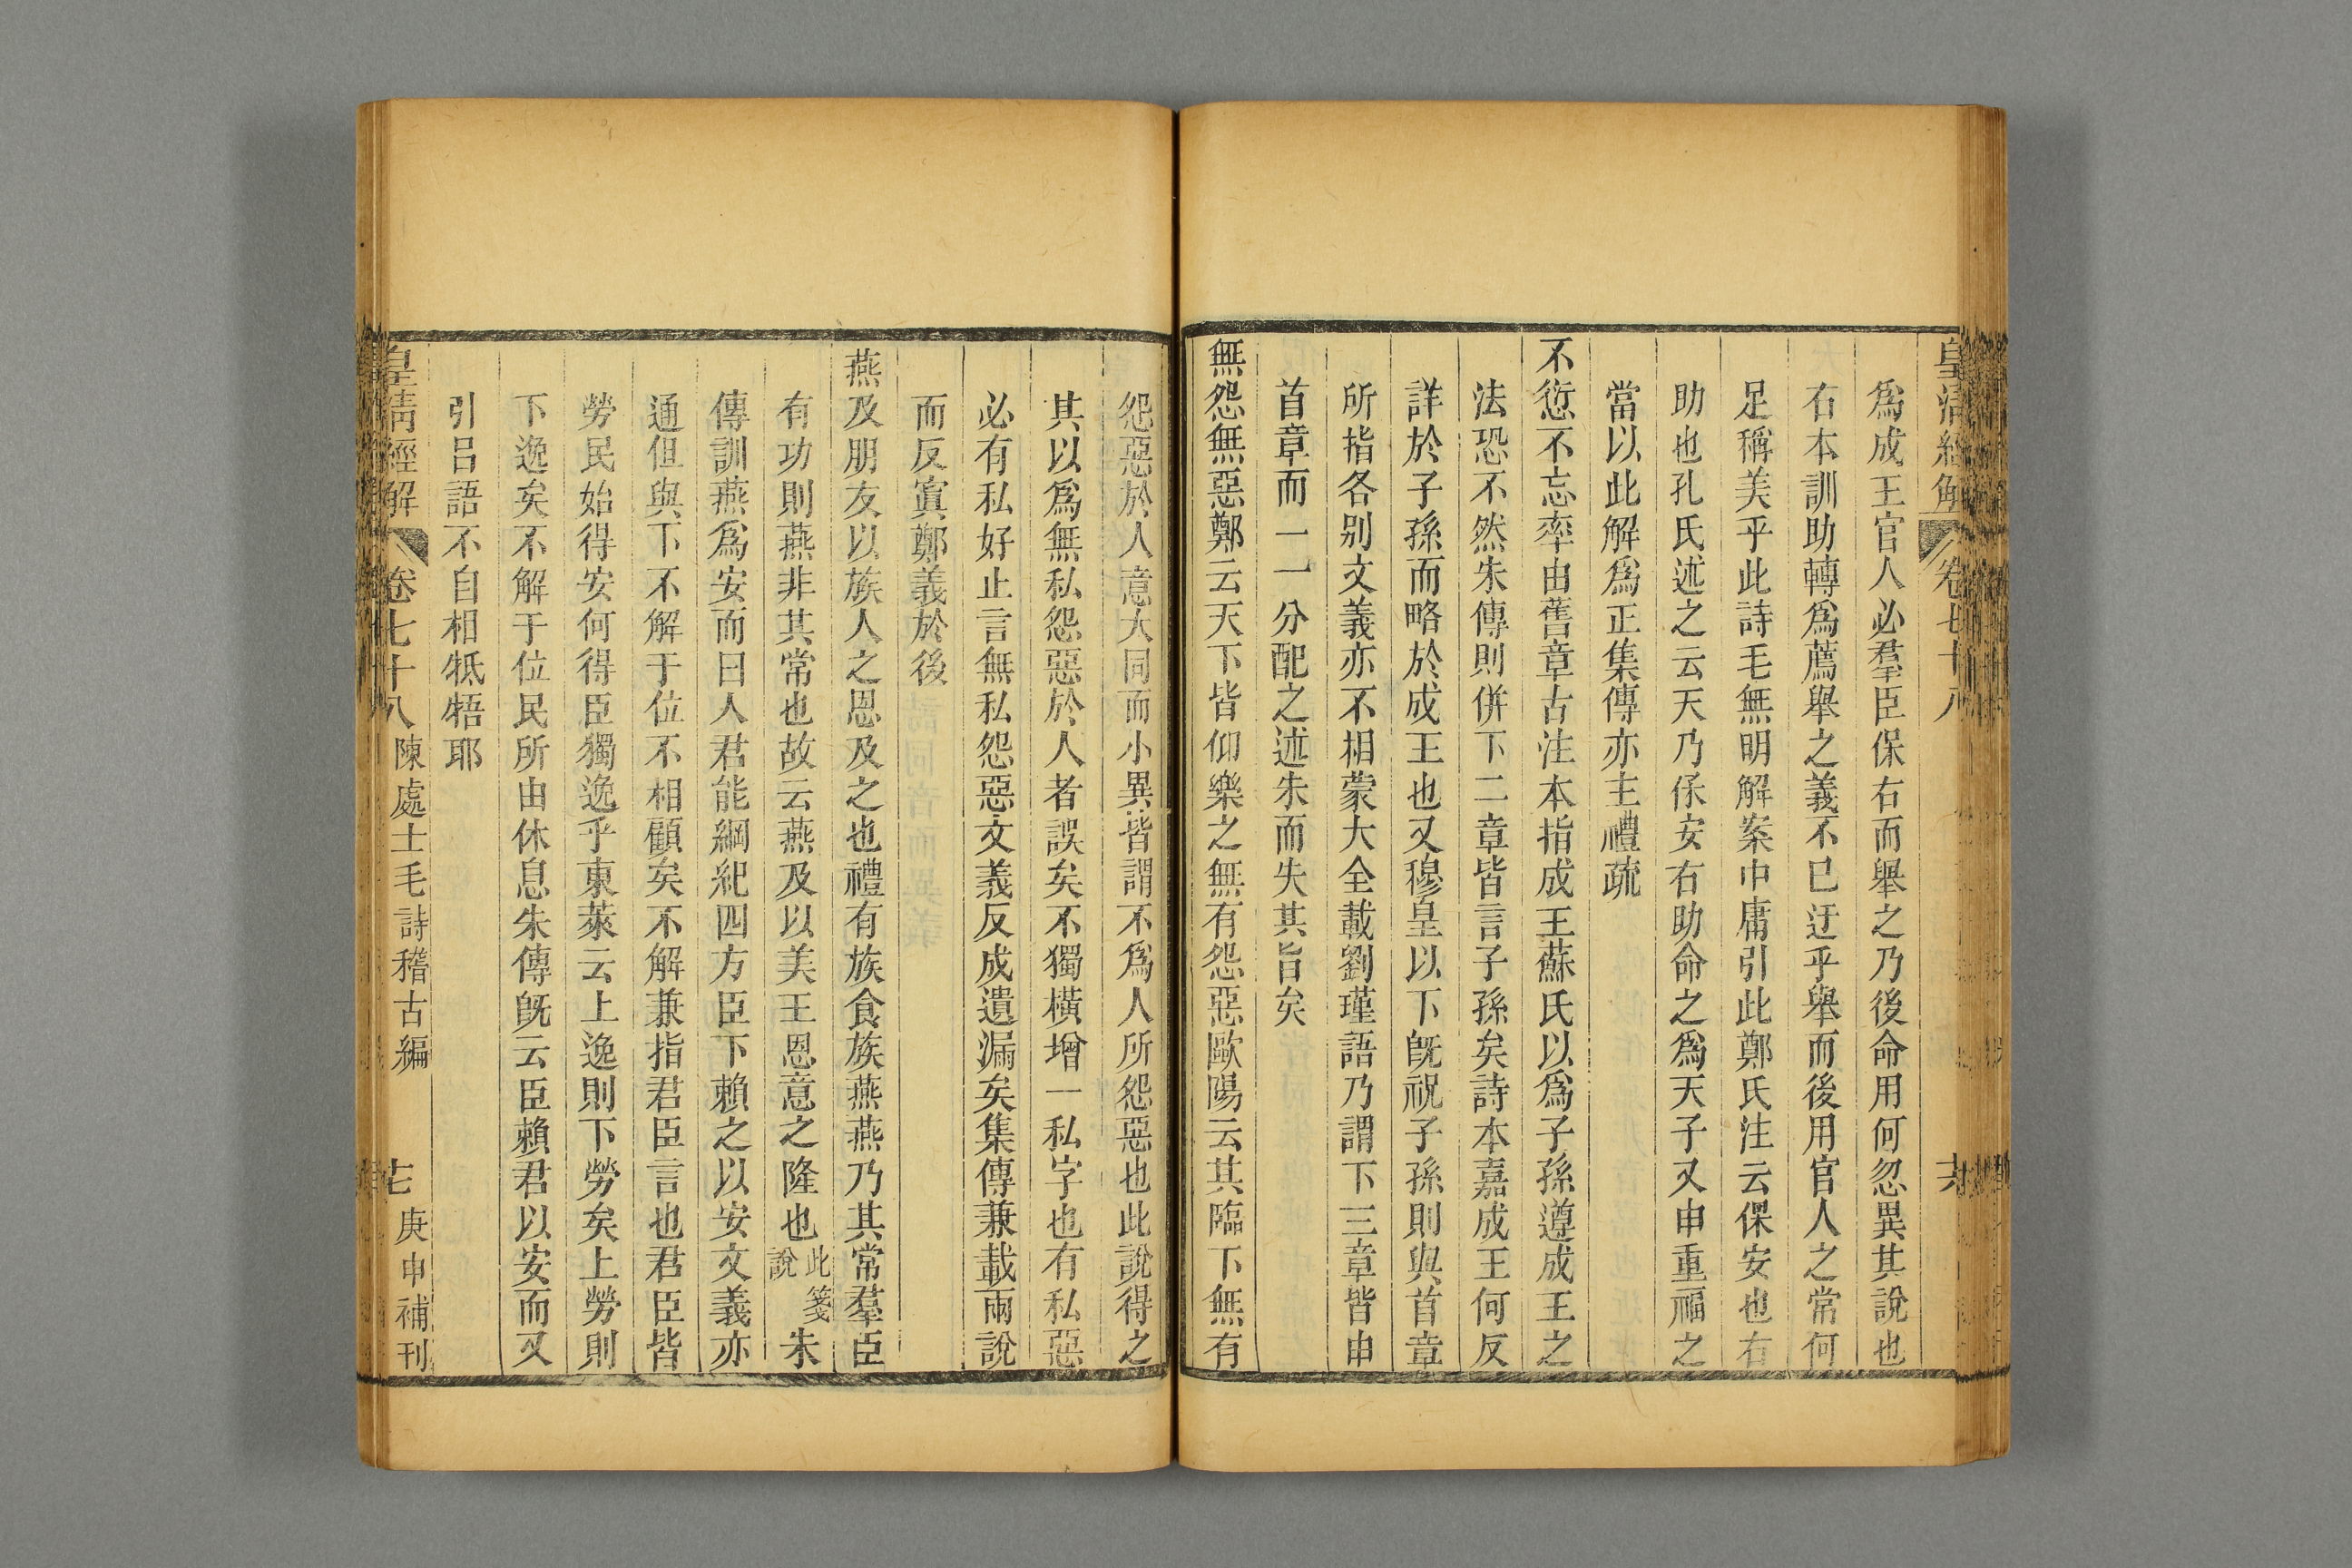 皇清經解 卷七十八 十六
爲成王官人必羣臣保右而舉之乃後命用何忽異其說也
右本訓助轉爲薦舉之義不已迂乎舉而後用官人之常何
足稱美乎此詩毛無明解案中庸引此鄭氏注云保安也右
助也孔氏述之云天乃保安右助命之爲天子又申重福之
當以此解爲正集傳亦主禮疏
不愆不忘率由舊章古注本指成王蘇氏以爲子孫遵成王之
法恐不然朱傳則併下二章皆言子孫矣詩本嘉成王何反
詳於子孫而略於成王也又穆皇以下旣祝子孫則與首章
所指各別文義亦不相蒙大全載劉瑾語乃謂下三章皆申
首章而一一分配之述朱而失其旨矣
無怨無惡鄭云天下皆仰樂之無有怨惡歐陽云其臨下無有
怨惡於人意大同而小異皆謂不爲人所怨惡也此說得之
其以爲無私怨惡於人者誤矣不獨橫增一私字也有私惡
必有私好止言無私怨惡文義反成遺漏矣集傳兼載兩說
而反寘鄭義於後
燕及朋友以族人之恩及之也禮有族食族燕燕乃其常羣臣
有功則燕非其常也故云燕及以美王恩意之隆也此箋說朱
傳訓燕爲安而曰人君能綱紀四方臣下賴之以安文義亦
通但與下不解于位不相顧矣不解兼指君臣言也君臣皆
勞民始得安何得臣獨逸乎東萊云上逸則下勞矣上勞則
下逸矣不解于位民所由休息朱傳旣云臣賴君以安而又
引呂語不自相牴牾耶
皇清經解 卷七十八 陳處士毛詩稽古編 十七 庚申補刊